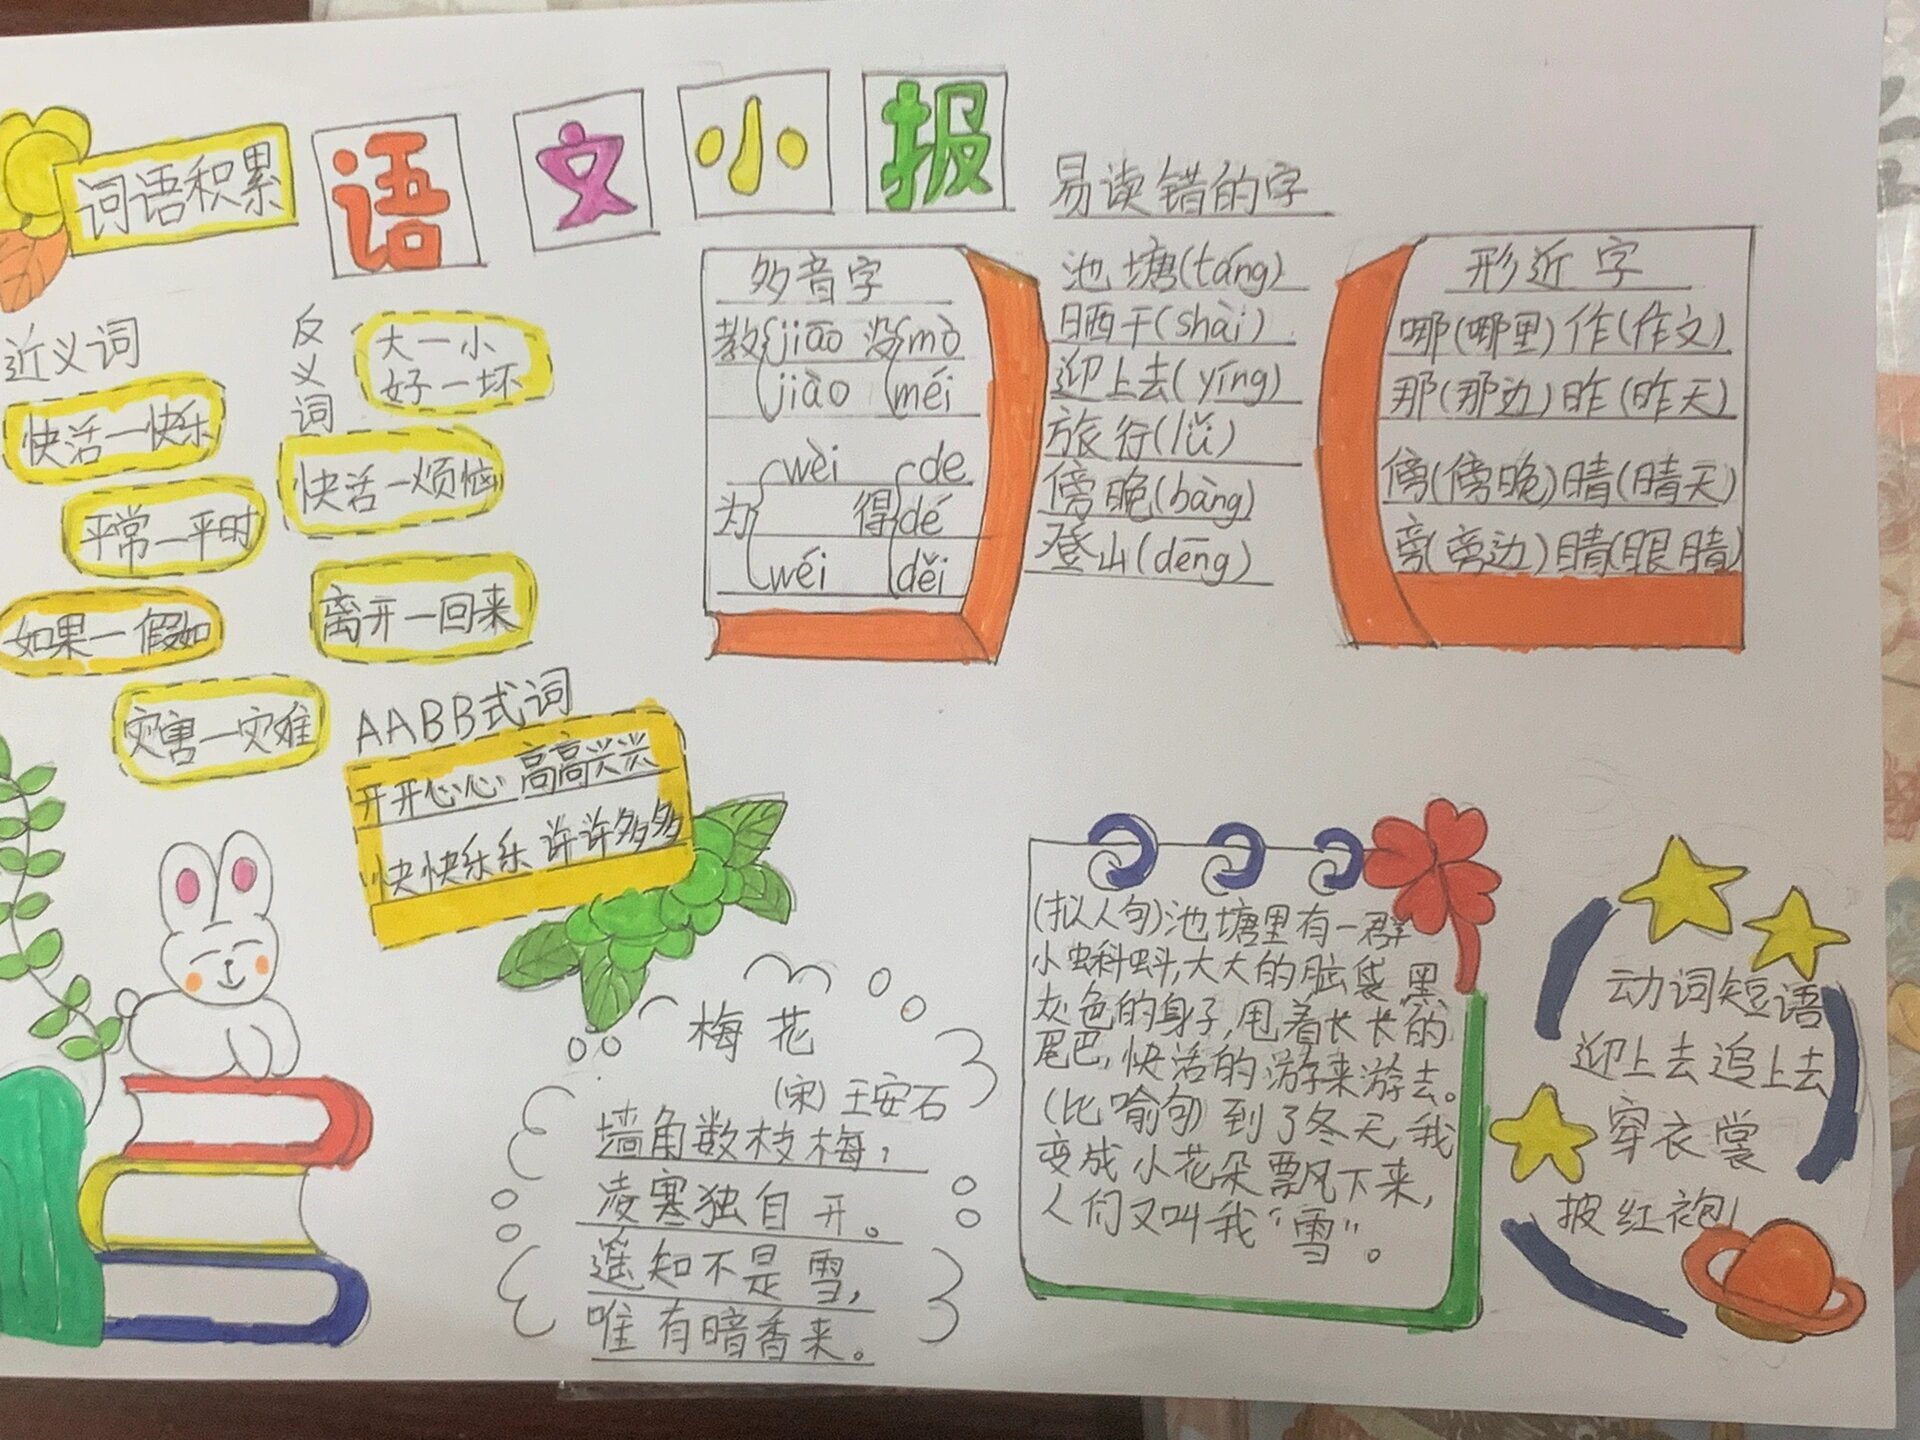 词语积累
语文小报
近义词
快活一快乐
平常一平时
如果一假如
灾害一灾难
反义词
大一小
好一坏
快活一烦恼
离开一回来
AABB式词
开开心心 高高兴兴
快快乐乐 许许多多
多音字
教 jiāo 没 mò
jiào méi
wèi de
为 得 dé
wéi děi
易读错的字
池塘(táng)
晒干(shài)
迎上去(yíng)
旅行(lǚ)
傍晚(bàng)
登山(dēng)
形近字
哪(哪里)作(作文)
那(那边)昨(昨天)
傍(傍晚)晴(晴天)
旁(旁边)睛(眼睛)
梅花
(宋)王安石
墙角数枝梅,
凌寒独自开。
遥知不是雪,
唯有暗香来。
(拟人句)池塘里有一群
小蝌蚪,大大的脑袋黑
灰色的身子,甩着长长的
尾巴,快活的游来游去。
(比喻句)到了冬天,我
变成小花朵飘下来,
人们又叫我“雪”。
动词短语
迎上去 追上去
穿衣裳
披红袍